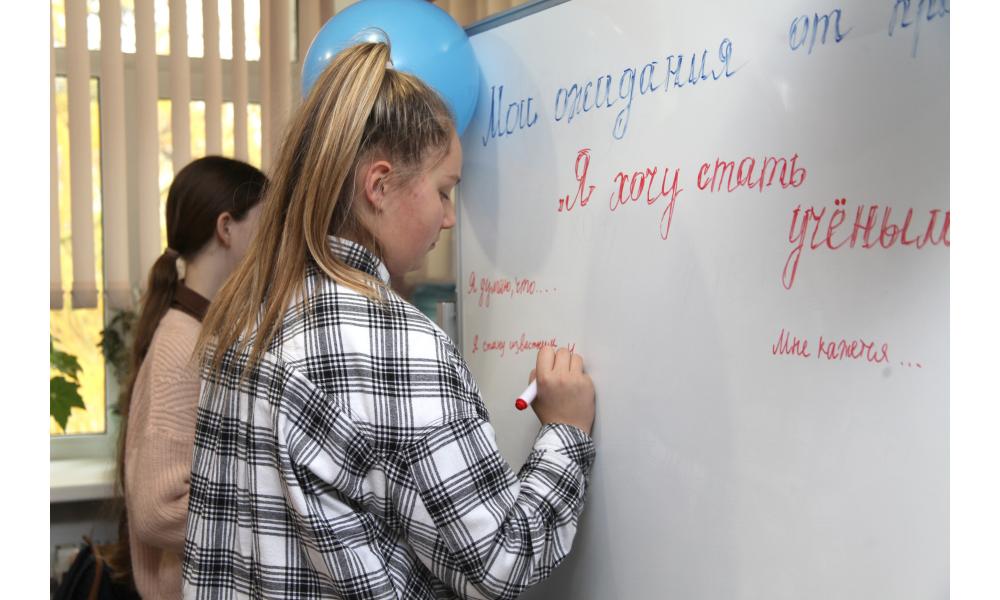 Мои ожидания от
„Я хочу стать
учёным
Я думаю, что....
Я стану известным
Мне кажется ...